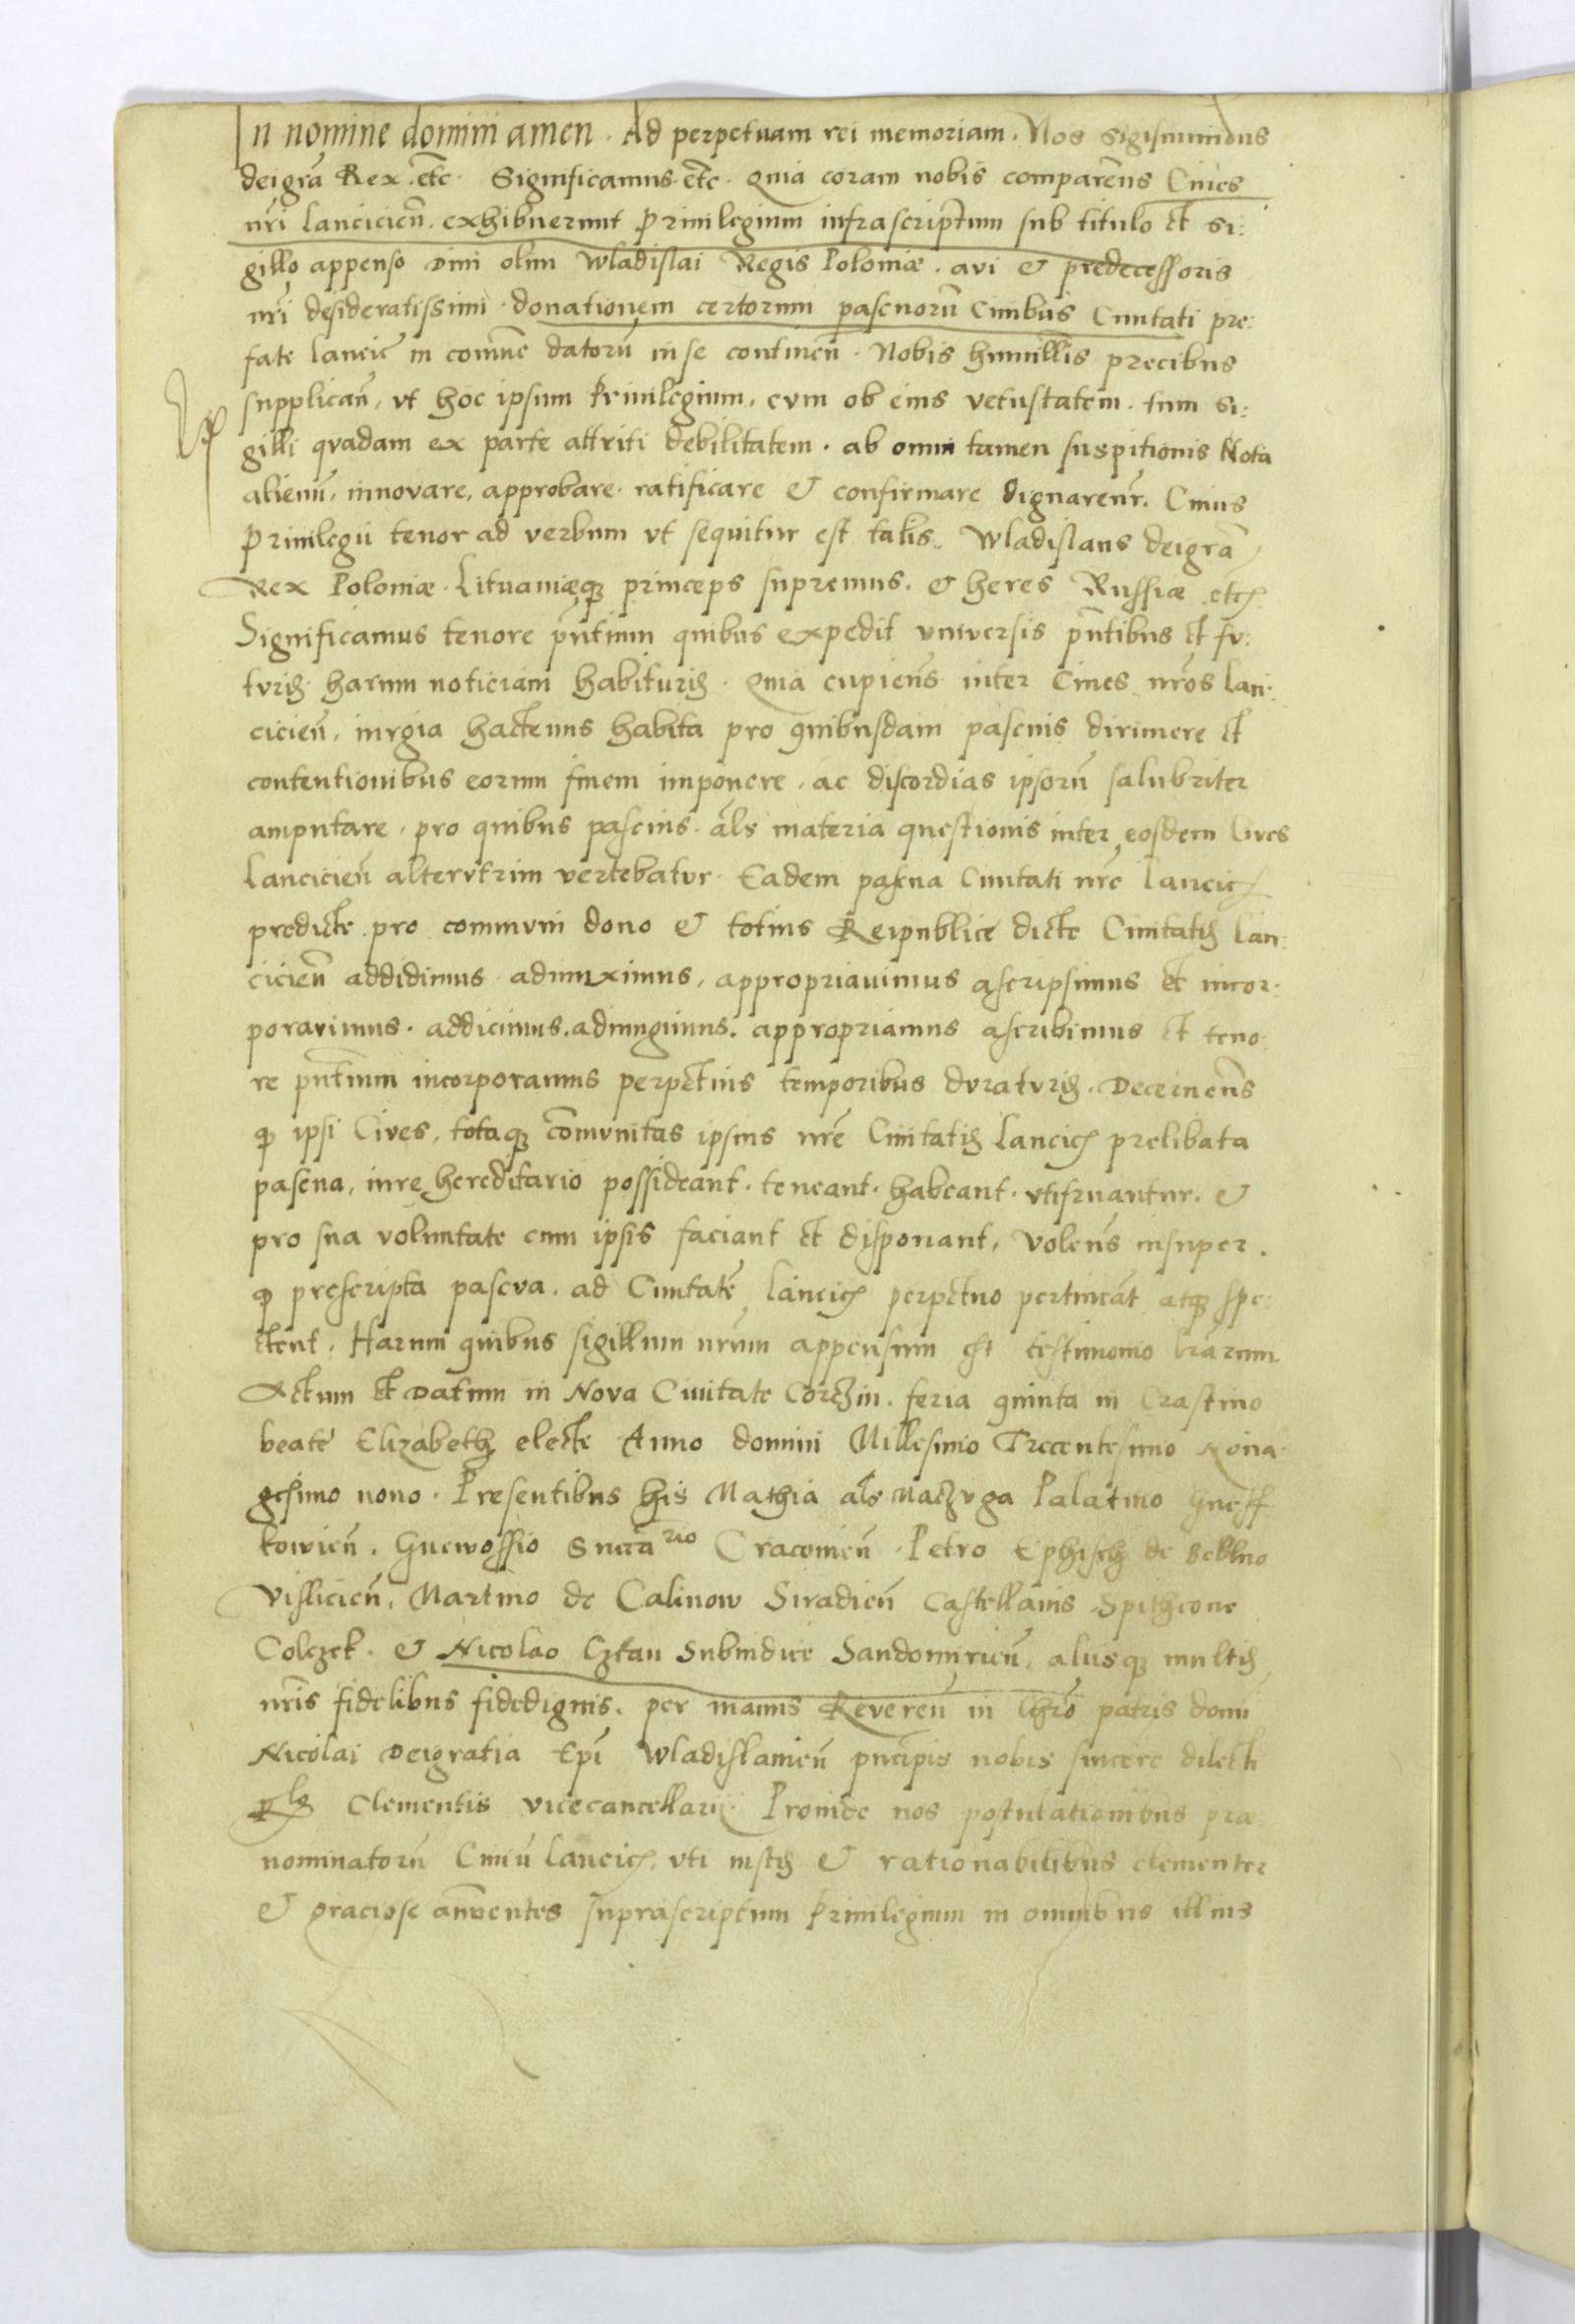 In nomine domini amen. Ad perpetuam rei memoriam. Nos Sigismundus
deigrã Rex. etc. Significamus. etc. Quia coram nobis comparẽns Ciues
nrĩ lanciciẽn. exhibuerunt Priuilegium infrascriptum sub titulo et si:
gillo appenso Diui olim Wladislai Regis Poloniæ. aui & predecessoris
nrĩ desideratissimi. donationem certorum pascuorũ Ciuibus Ciuitati pre:
fate lancic̃ in comũne datorũ in se continẽn. Nobis humillis precibus
supplicañ, vt hoc ipsum Priuilegium, cvm ob eius vetustatem. tum si:
gilli qvadam ex parte attriti debilitatem. ab omni tamen suspitionis Nota
alienũ, innovare, approbare. ratificare & confirmare dignaremr̃. Cuius
Priuilegii tenor ad verbum vt sequitur est talis. Wladislaus deigrã
Rex Poloniæ. Lituaniæq; princeps supremus. & heres Russiæ etc̃
Significamus tenore pñtium quibus expedit vniversis pñtibus et fv:
tvris harum noticiam habituris. Quia cupiẽns inter Ciues nrõs lan:
ciciẽn, iurgia hactenus habita pro quibusdam pascuis dirimere et
contentionibus eorum finem imponere. ac discordias ipsorũ salubriter
amputare. pro quibus pascuis. als̃ materia questionis inter eosdem Ciues
lanciciẽn altervtrim vertebatvr. Eadem pascua Ciuitati nrẽ lancic̃
predicte pro commvni dono & totius Reipublice dicte Ciuitatis lan:
ciciẽn addidimus adiunximus, appropriauimus ascripsimus et incor:
poravimus. addicimus. adiungimus. appropriamus ascribimus et teno:
re pñtium incorporamus perpetuis temporibus dvratvris. Decernẽns
q ipsi Cives, totaq; com̃vnitas ipsius nrẽ Ciuitatis lancic̃ prelibata
pascua, iure hereditario possideant. teneant. habeant. vtifruantur. &
pro sua voluntate cum ipsis faciant et disponant, Volẽns insuper.
q prescripta pascva. ad Ciuitatẽ lancic̃ perpetuo pertineãt atq; spe:
ctent. Harum quibus sigillum nrũm appensum est testimonio lrãrum.
Actum et Datum in Nova Ciuitate Corczin. feria quinta in Crastino
beate Elizabeth electe Anno domini Millesimo Trecentesimo Nona
gesimo nono. Presentibus his Mathia als̃ Naczvga Palatino
kowieñ. Gnewossio Succa rio Cracouieñ. Petro de
Vislicieñ. Martino de Calinow Siradieñ Castellanis Spithcone
Colczek. & Nicolao Cztan Subiudice Sandomirieñ, aliisq; multis
nrĩs fidelibus fidedignis. per manus Revereñ in Chrõ patris domi
Nicolai Deigratia Epĩ Wladislauieñ pñcipis nobis sincere dilecti
Clementis vicecancellarij. Proinde nos postulationibus præ
nominatorũ Ciuiũ lancic̃. vti iustis & rationabilibus clementer
& graciose annventes suprascriptum Priuilegium in omnibus illius